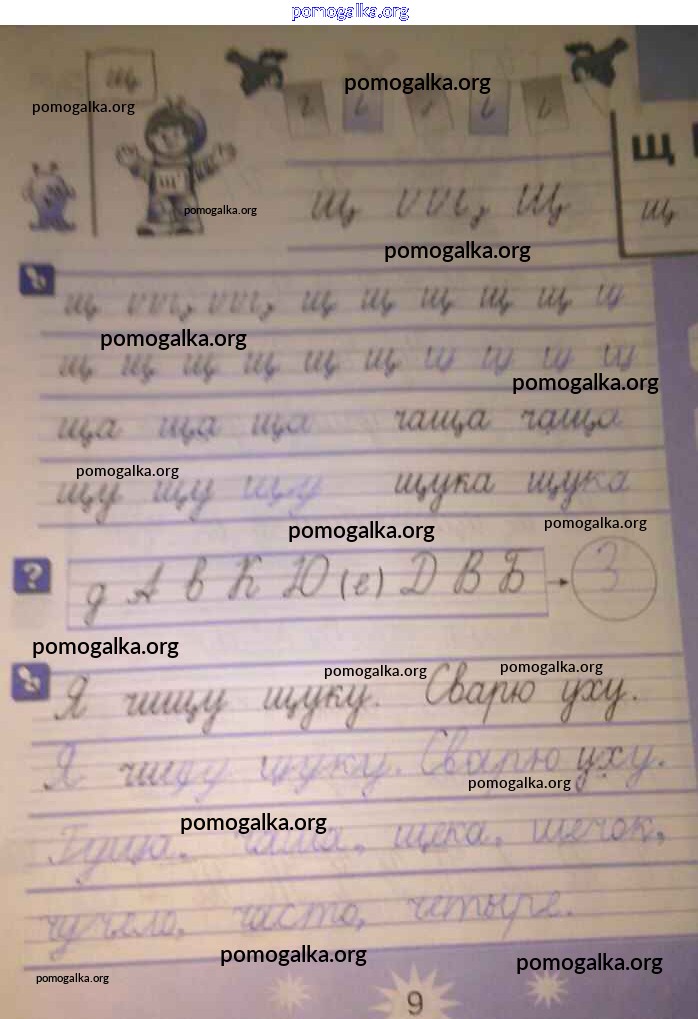 pomogalka.org
щ
pomogalka.org
pomogalka.org
щ
pomogalka.org
Щ
щ
щ щ
pomogalka.org
щ щ щ щ щ щ
pomogalka.org
щ щ щ щ щ щ щ щ щ щ
pomogalka.org
ща ща ща чаща чаща
pomogalka.org
щу щу щу щука щука
pomogalka.org
pomogalka.org
?
д А в К Ю (е) Д В Б
3
pomogalka.org
pomogalka.org
pomogalka.org
Я чищу щуку. Сварю уху.
Я чищу щуку. Сварю уху.
pomogalka.org
pomogalka.org
щека,
чучело, часто, четыре.
pomogalka.org
pomogalka.org
pomogalka.org
9